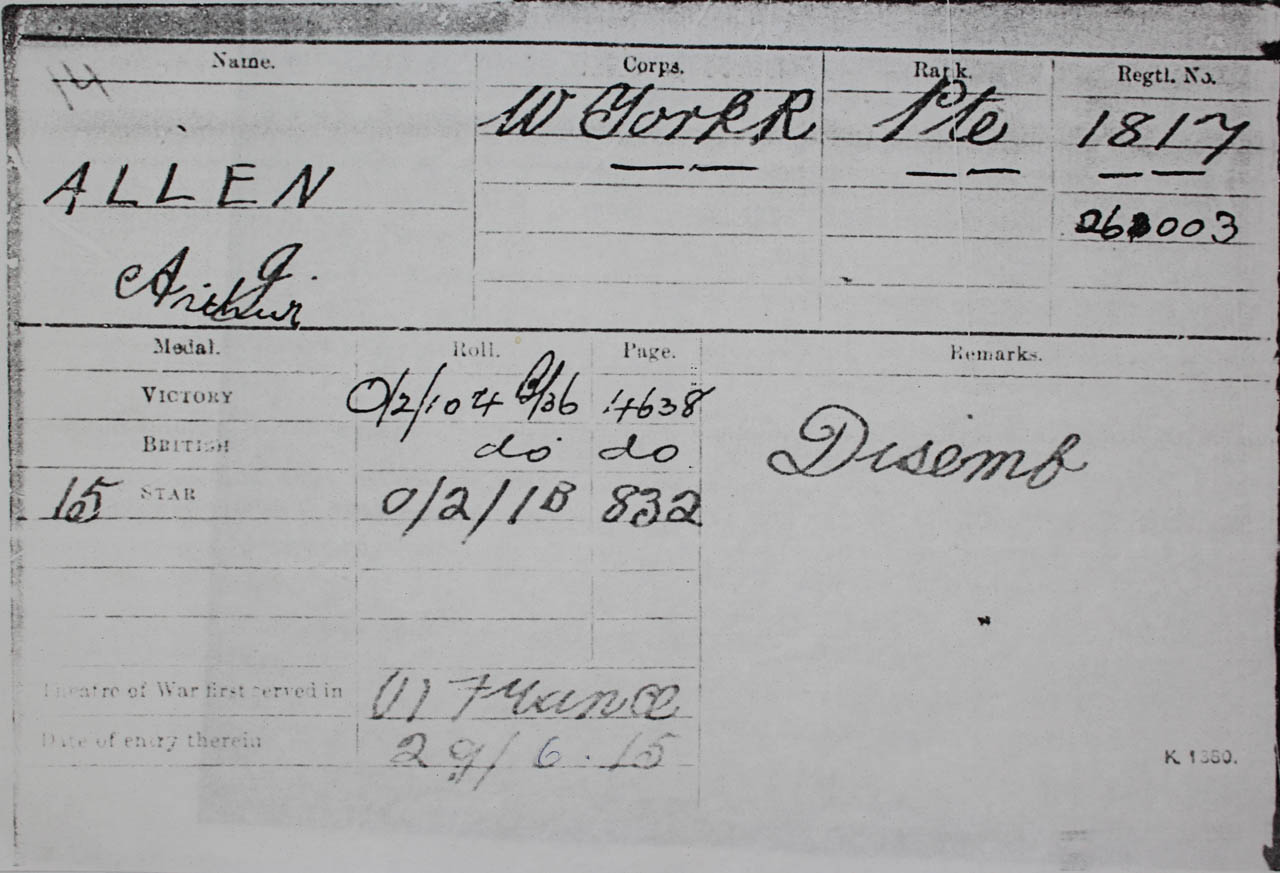 Name. Corps. Rank. Regtl. No.
14
W York R Pte 1817
ALLEN
003
Arthur
Medal. Roll. Page. Remarks.
VICTORY 0/2/104 B/36 4638
BRITISH do do
Disemb
15 STAR 0/2/1B 832
Theatre of War first served in (1) France
Date of entry therein 29/6.15
K 1380.